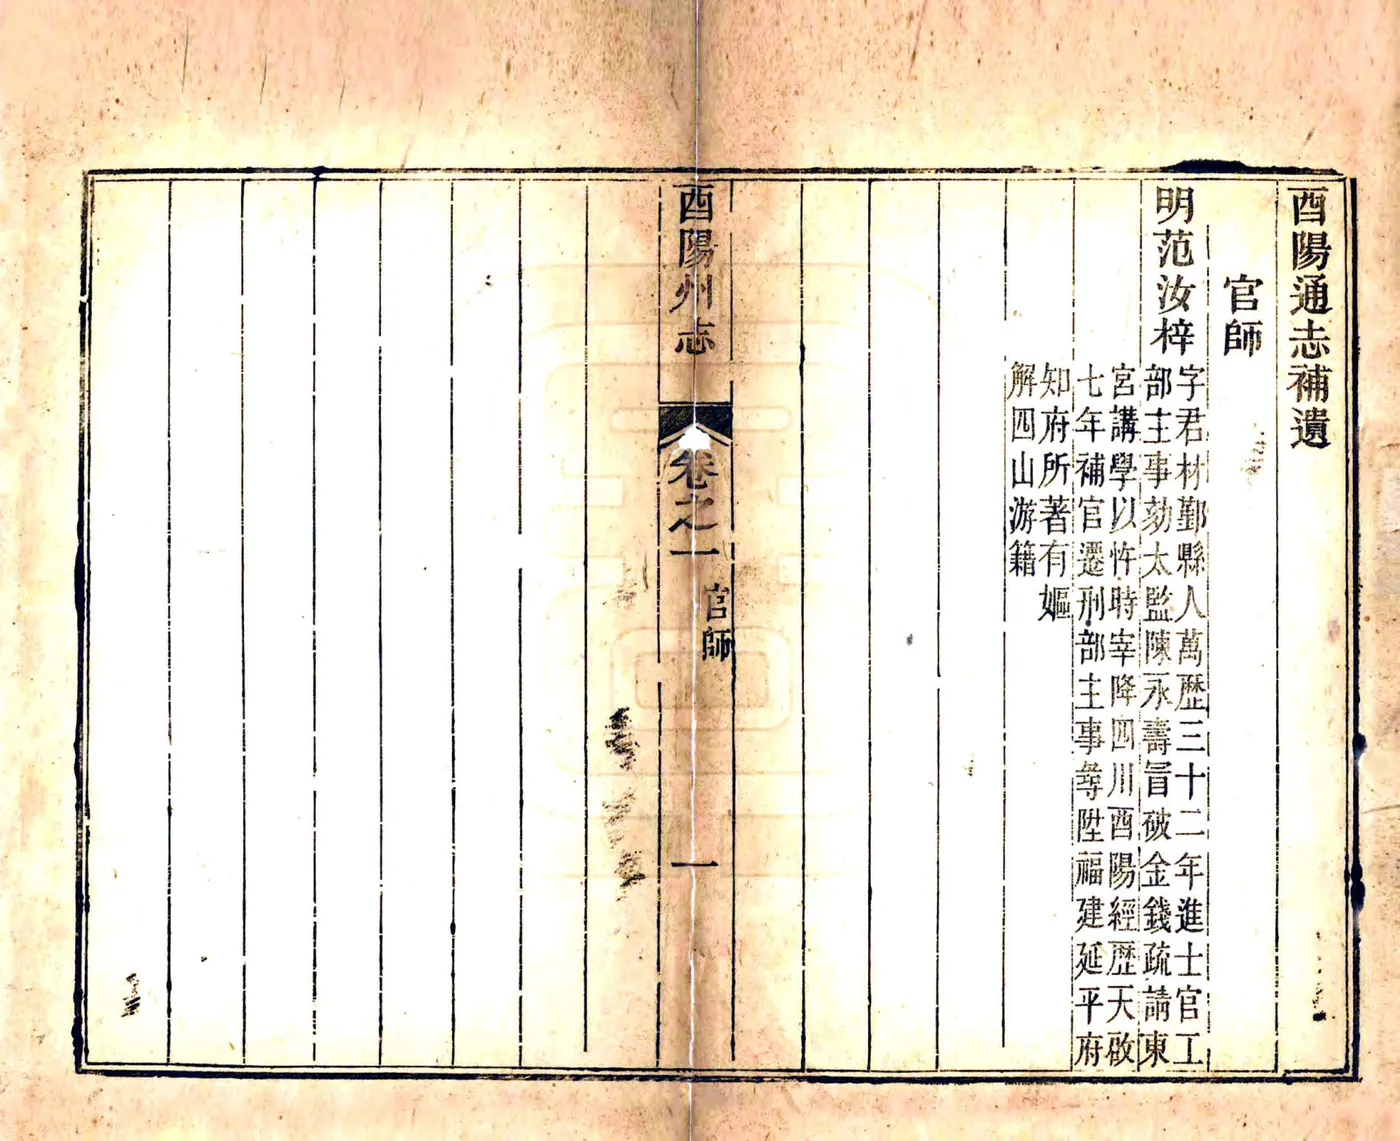 酉陽通志補遺
官師
明范汝梓
字君材鄞縣人萬歷三十二年進士官工
部主事劾太監陳永壽冒破金錢疏請東
宮講學以忤時宰降四川酉陽經歷天啟
七年補官遷刑部主事尋陞福建延平府
知府所著有嫗
解四山游籍
酉陽州志
卷之一
官師
一